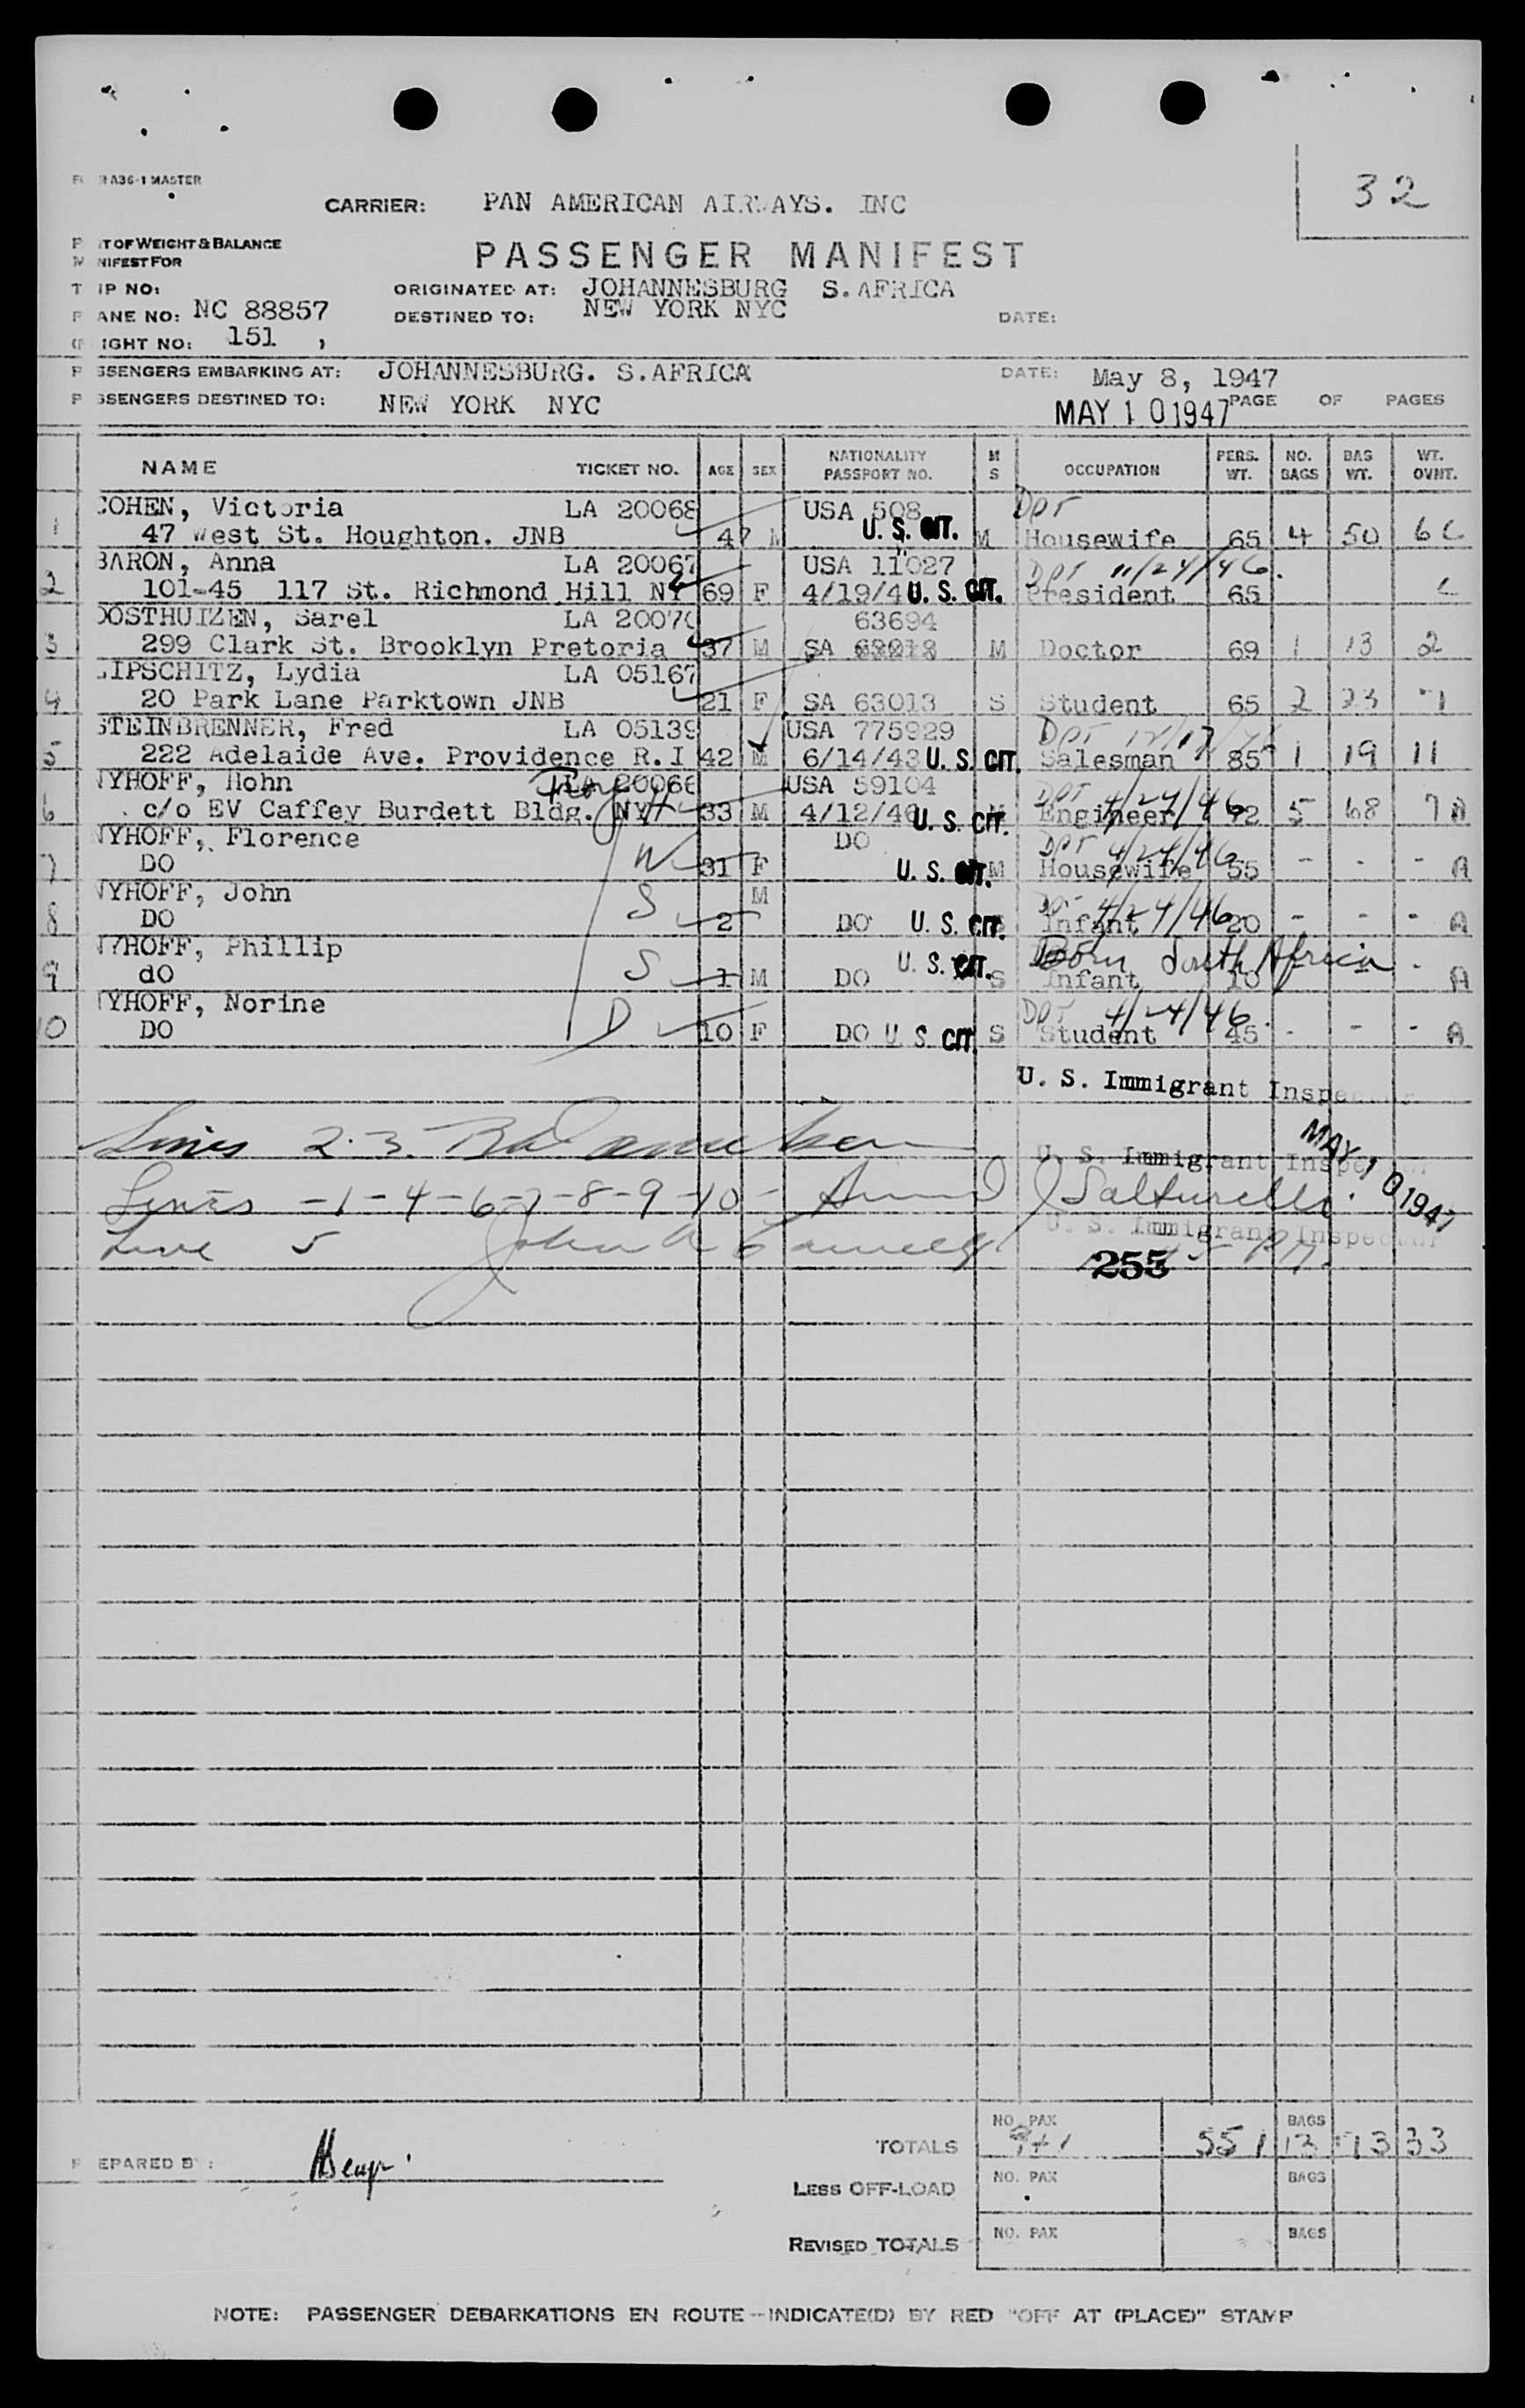 A36-1 MASTER
32
CARRIER: PAN AMERICAN AIRWAYS. INC
T OF WEIGHT & BALANCE
NIFEST FOR
PASSENGER MANIFEST
IP NO:
ORIGINATED AT: JOHANNESBURG S.AFRICA
ANE NO: NC 88857
DESTINED TO: NEW YORK NYC
DATE:
IGHT NO: 151 ,
SSENGERS EMBARKING AT: JOHANNESBURG. S.AFRICA
DATE: May 8, 1947
SSENGERS DESTINED TO: NEW YORK NYC
MAY 10 1947 PAGE OF PAGES
NAME TICKET NO. AGE SEX NATIONALITY PASSPORT NO. M S OCCUPATION PERS. WT. NO. BAGS BAG WT. WT. OVNT.
COHEN, Victoria LA 20068 USA 508 Dpt
1 47 West St. Houghton. JNB 47 M U. S. CIT. M Housewife 65 4 50
BARON, Anna LA 20067 USA 11027 Dpt 11/24/46.
2 101-45 117 St. Richmond Hill NY 69 F 4/19/4 U. S. CIT. President 65
OOSTHUIZEN, Sarel LA 20070 63694
3 299 Clark St. Brooklyn Pretoria 37 M SA M Doctor 69 1 13 2
LIPSCHITZ, Lydia LA 05167
4 20 Park Lane Parktown JNB 21 F SA 63013 S Student 65 2 23
STEINBRENNER, Fred LA 05139 USA 775929 Dpt
5 222 Adelaide Ave. Providence R.I 42 M 6/14/43 U. S. CIT. Salesman 85 1 19 11
NYHOFF, Hohn 20066 USA 59104 Dpt 4/24/46
6 c/o EV Caffey Burdett Bldg. NY H 33 M 4/12/46 U. S. CIT. Engineer 5 68 7 A
NYHOFF, Florence DO Dpt 4/24/46
7 DO W 31 F U. S. CIT. M Housewife 55 - - - A
NYHOFF, John S M 4/24/46
8 DO 2 DO U. S. CIT. Infant 20 - - - A
NYHOFF, Phillip S U. S. CIT. Born South Africa
9 dO 1 M DO S Infant 10 - A
NYHOFF, Norine Dpt 4/24/46.
10 DO D 10 F DO U. S. CIT. S Student 45 - - - A
U. S. Immigrant Inspector
Lines 2.3.
U. S. Immigrant Inspector
MAY 10 1947
Lines -1-4-6-7-8-9-10-
U. S. Immigrant Inspector
Line 5 John
255
TOTALS NO. PAX 9+1 551 BAGS 13 33
EPARED B :
LESS OFF-LOAD NO. PAX BAGS
REVISED TOTALS NO. PAX BAGS
NOTE: PASSENGER DEBARKATIONS EN ROUTE -- INDICATE(D) BY RED "OFF AT (PLACE)" STAMP